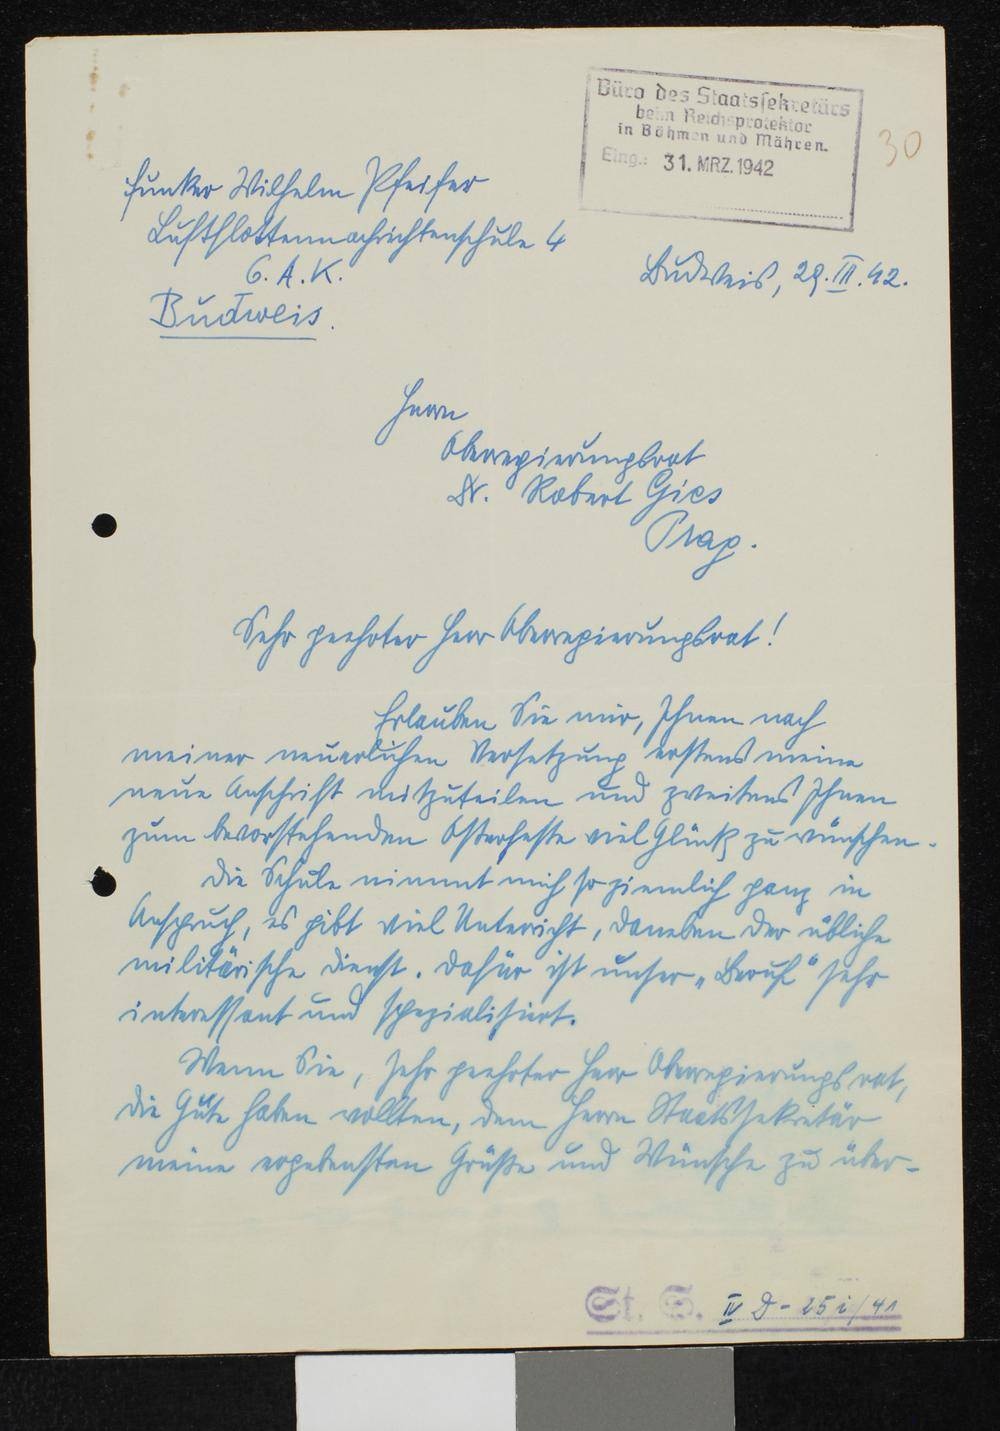 Büro des Staatssekretärs
beim Reichsprotektor
in Böhmen und Mähren.
Eing.: 31. MRZ. 1942
30
Funker Wilhelm Pfeifer
Luftflottennachrichtenschule 4
6. A. K.
Budweis.
Budweis, 29. III. 42.
Herrn
Oberregierungsrat
Dr. Robert Gies
Prag.
Sehr geehrter Herr Oberregierungsrat!
Erlauben Sie mir, Ihnen nach
meiner neuerlichen Versetzung erstens meine
neue Anschrift mitzuteilen und zweitens Ihnen
zum bevorstehenden Osterfeste viel Glück zu wünschen.
Die Schule nimmt mich so ziemlich ganz in
Anspruch, es gibt viel Unterricht, daneben der übliche
militärische Dienst. Dafür ist unser „Beruf" sehr
interessant und spezialisiert.
Wenn Sie, sehr geehrter Herr Oberregierungsrat,
die Güte haben wollten, dem Herrn Staatssekretär
meine ergebensten Grüße und Wünsche zu über-
St. S. IV D - 25 i / 41